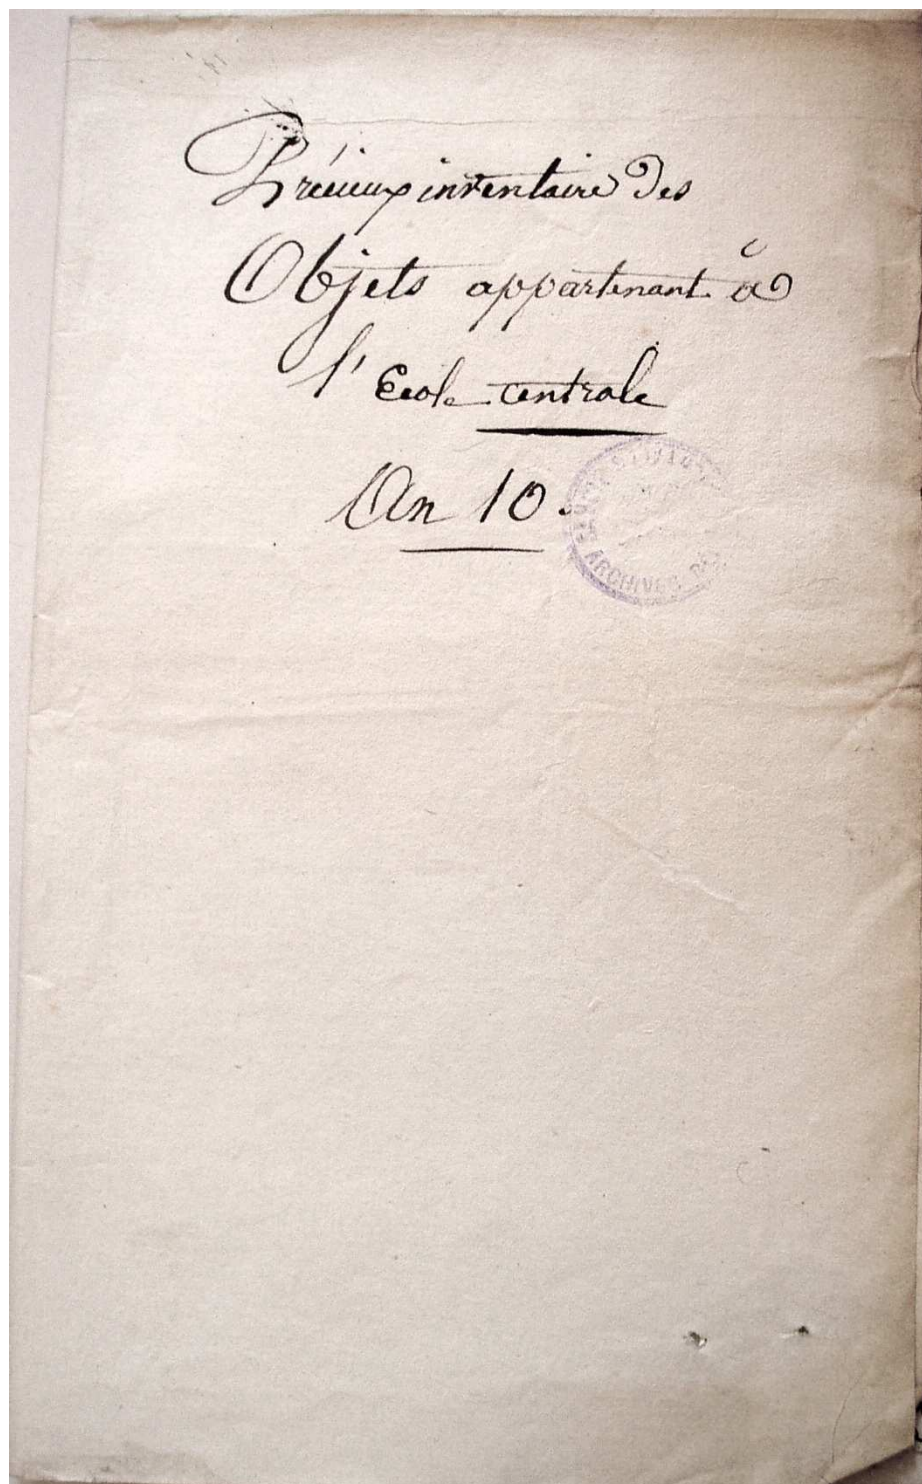 Précieux inventaire Des
Objets appartenant à
l'Ecole centrale
An 10.
ARCHIVES